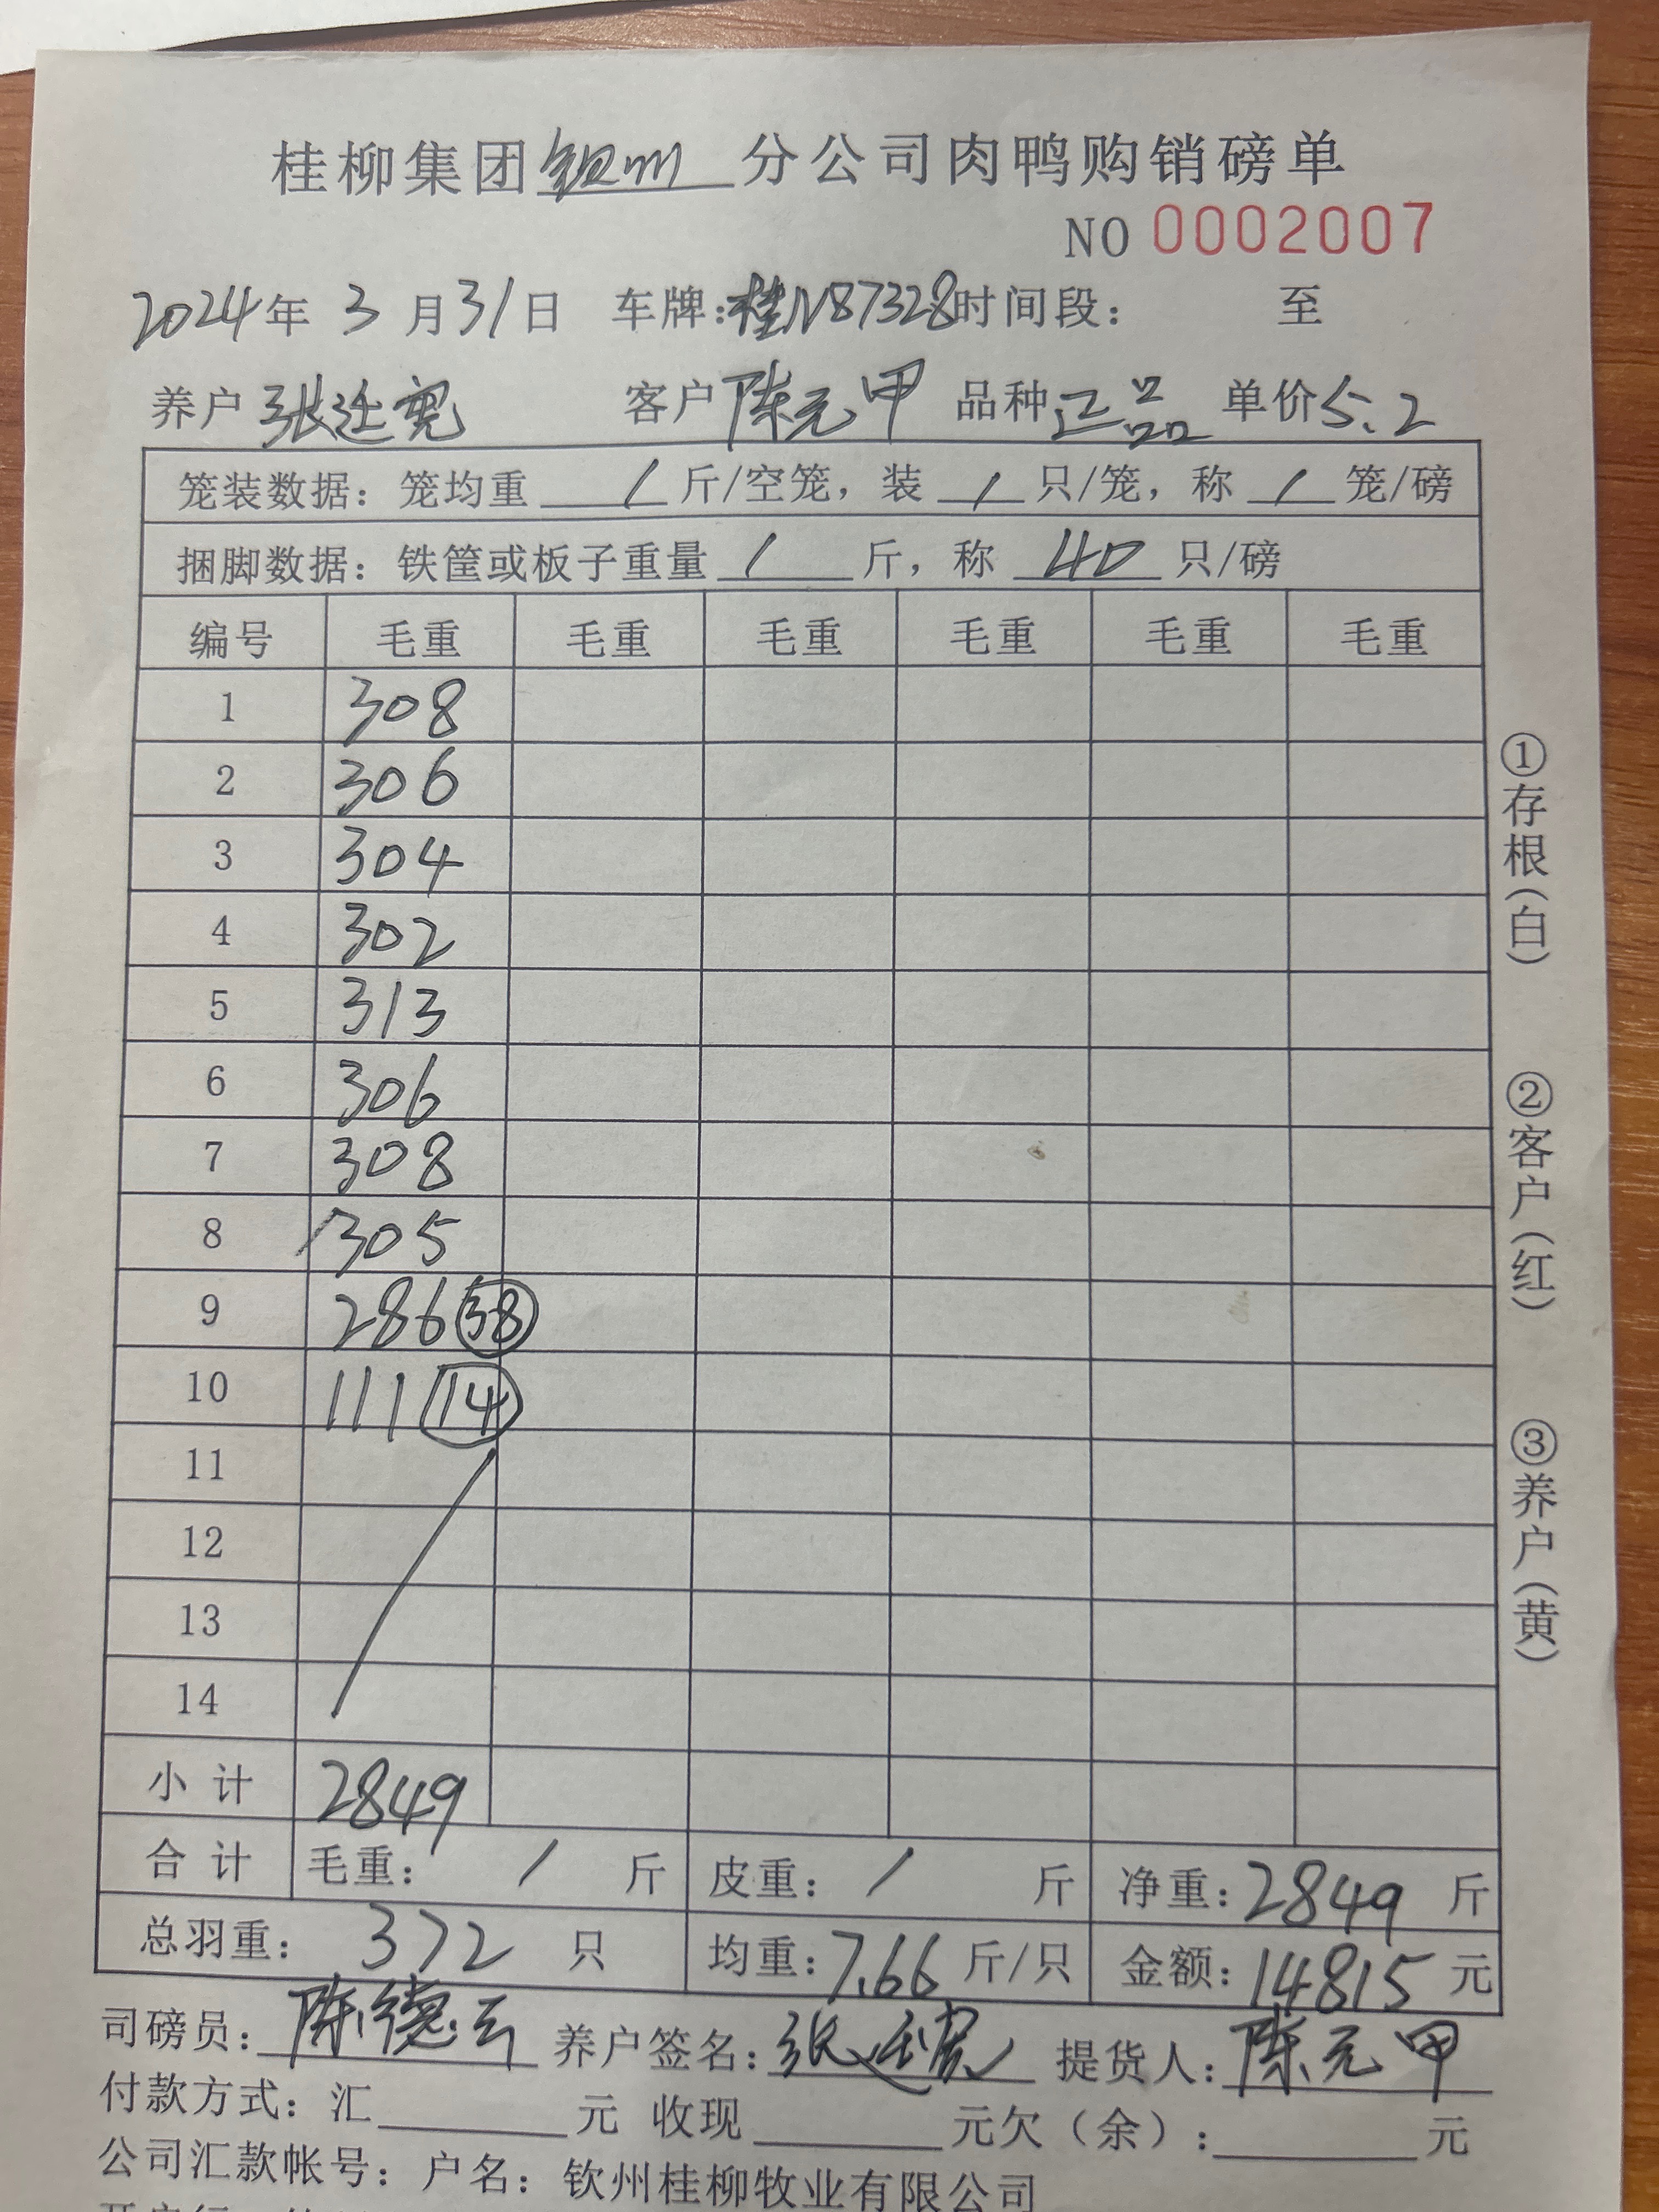 桂柳集团钦州分公司肉鸭购销磅单
NO 0002007
2024年 3 月 31日 车牌:桂N87328时间段: 至
养户 张廷宽 客户 陈元甲 品种 正品 单价5.2
笼装数据: 笼均重 / 斤/空笼, 装 / 只/笼, 称 / 笼/磅
捆脚数据: 铁筐或板子重量 / 斤, 称 40 只/磅
编号 毛重 毛重 毛重 毛重 毛重 毛重
1 308
2 306
3 304
4 302
5 313
6 306
7 308
8 305
9 286 38
10 111 14
11
12
13
14
小计 2849
合计 毛重: / 斤 皮重: / 斤 净重: 2849 斤
总羽重: 372 只 均重: 7.66 斤/只 金额: 14815 元
司磅员: 陈德云 养户签名: 张廷宽 提货人: 陈元甲
付款方式: 汇 元 收现 元欠(余): 元
公司汇款帐号: 户名: 钦州桂柳牧业有限公司
①存根(白)
②客户(红)
③养户(黄)